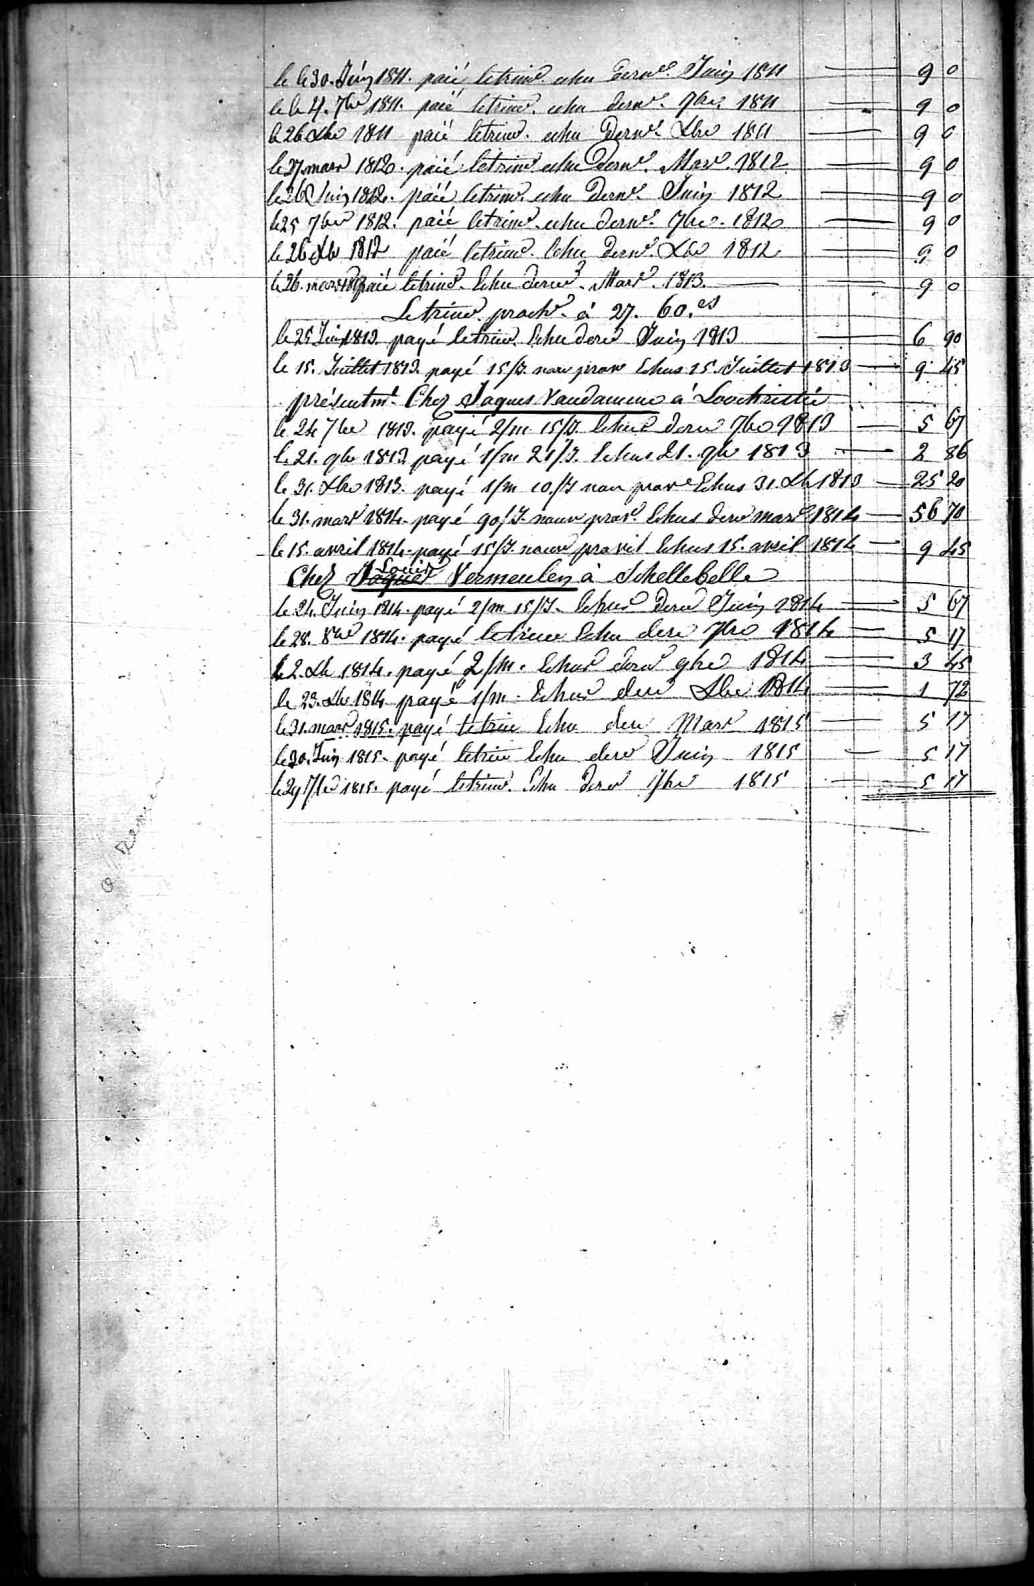 le 30. Juin 1811. paié le trim.e echu dern.r Juin 1811 9 0
le 4. 7bre 1811. paié le trim.e echu dern.r 7bre 1811 9 0
le 26 Xbre 1811 paié le trim.e echu Dern.r Xbre 1811 9 0
le 27 mars 1812. paié le trim.e echu dern.r Mars 1812 9 0
le 26 Juin 1812. paié le trim.e echu Dern.r Juin 1812 9 0
le 25 7bre 1812. paié le trim.e echu dern.r 7bre 1812 9 0
le 26 Xbre 1812 paié le trim.e Echu dern.r Xbre 1812 9 0
le 26. mars 1813 paié le trim.e Echu dern.r Mars 1813. 9 0
Le trim.e proch.n à 27. 60.es
le 25 Juin 1813. payé le trim.e Echu dern Juin 1813 6 90
le 15. Juillet 1813 payé 15/J. Echus 15. Juillet 1813 9 45
présentmt. Chez Jaques Vandamme à Loochristie
le 24 7bre 1813. payé 2/m 15/J. Echus dern 7bre 1813 5 67
le 21. 9bre 1813 payé 1/m 21/J. Echus 21. 9bre 1813 2 86
le 31. Xbre 1813. payé 1/m 10/J Echus 31. Xbre 1813 25 20
le 31. mars 1814. payé 90/J. Echus dern mars 1814 56 70
le 15. avril 1814. payé 15/J. Echus 15. avril 1814 9 45
Chez Jaques Louis Vermeulen à Schellebelle
le 24. Juin 1814. payé 2/m 15/J. Echus dern Juin 1814 5 67
le 28. 8bre 1814. payé le trim Echu dern 7bre 1814 5 17
le 2. Xbre 1814. payé 2/m. Echus dern 9bre 1814 3 45
le 23. Xbre 1814 payé 1/m. Echus dern Xbre 1814 1 72
le 31. mars 1815. payé le trim Echu dern Mars 1815 5 17
le 30. Juin 1815. payé le trim Echu dern Juin 1815 5 17
le 29 7bre 1815. payé le trim Echu dern 7bre 1815 5 17